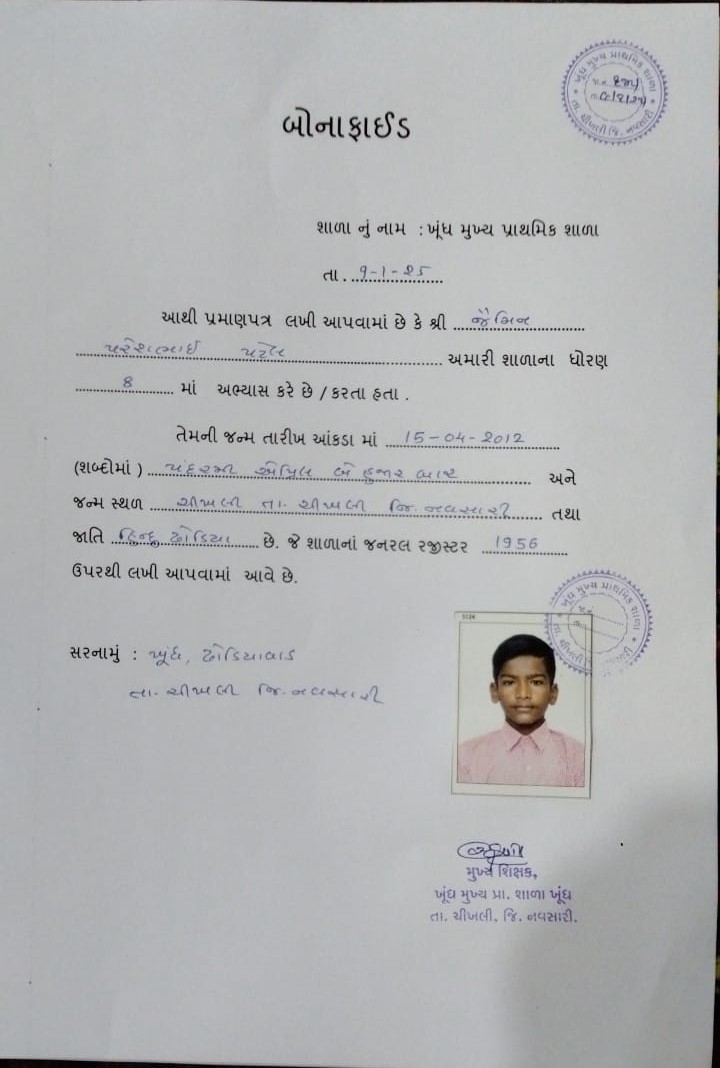 ખૂંધ મુખ્ય પ્રાથમિક શાળા
તા. ચીખલી જિ. નવસારી
બોનાફાઈડ
શાળા નું નામ : ખૂંધ મુખ્ય પ્રાથમિક શાળા
તા. ૧-૧-૨૫
આથી પ્રમાણપત્ર લખી આપવામાં છે કે શ્રી જૈમિન
પરેશભાઈ પટેલ અમારી શાળાના ધોરણ
8 માં અભ્યાસ કરે છે / કરતા હતા .
તેમની જન્મ તારીખ આંકડા માં 15-04-2012
(શબ્દોમાં ) પંદરમી એપ્રિલ બે હજાર બાર અને
જન્મ સ્થળ ચીખલી તા. ચીખલી જિ. નવસારી તથા
જાતિ હિન્દુ ઢોડિયા છે. જે શાળાનાં જનરલ રજીસ્ટર 1956
ઉપરથી લખી આપવામાં આવે છે.
ખૂંધ મુખ્ય પ્રાથમિક શાળા
સરનામું : ખૂંધ, ઢોડિયાવાડ
તા. ચીખલી જિ. નવસારી
મુખ્ય શિક્ષક,
ખૂંધ મુખ્ય પ્રા. શાળા ખૂંધ
તા. ચીખલી, જિ. નવસારી.